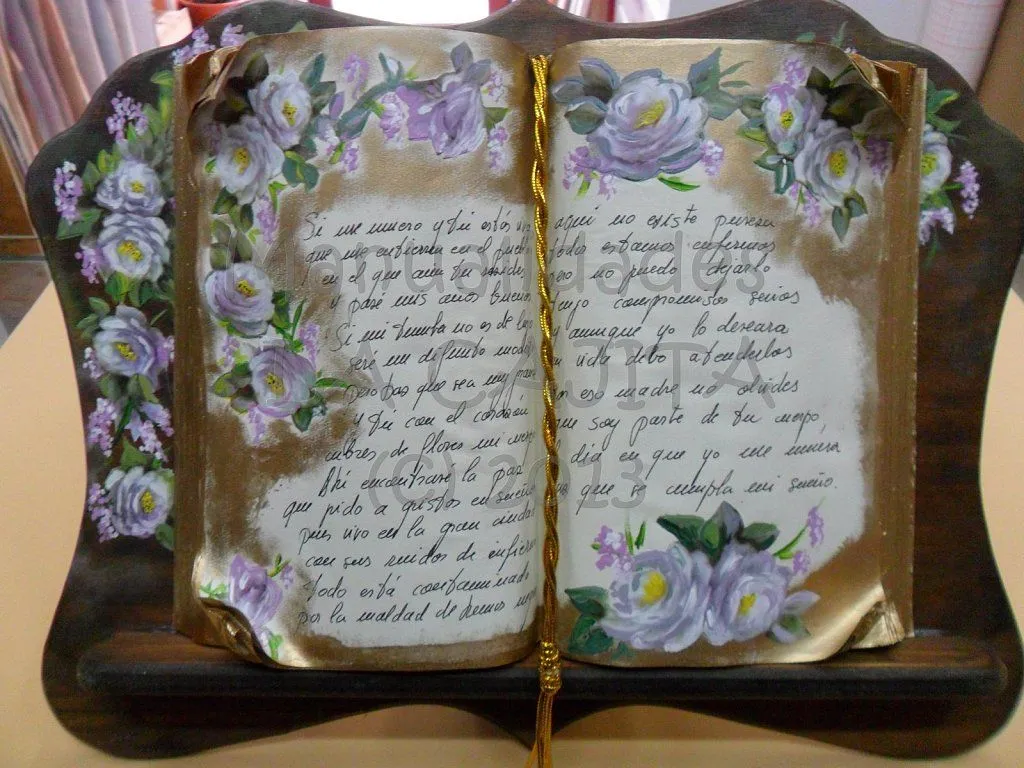 Si me muero y tú estás
que me entierren en el pueblo
en el que aun tu resides
y pasé mis años buenos
Si mi tumba no es de lujo
seré un difunto modesto
pero haz que sea muy
y tú con el corazón
cubres de flores mi
Ahí encontraré la paz
que pido a gritos en sueños
pues vivo en la gran ciudad
con sus ruidos de infierno
todo está contaminado
por la maldad de
aquí no existe pureza
todos estamos enfermos
pero no puedo dejarlo
tengo compromisos serios
y aunque yo lo deseara
en vida debo atenderlos
eso madre no olvides
que soy parte de tu cuerpo,
el día en que yo me muera
que se cumpla mi sueño.
Manualidades
CAJITA
(C) 2013